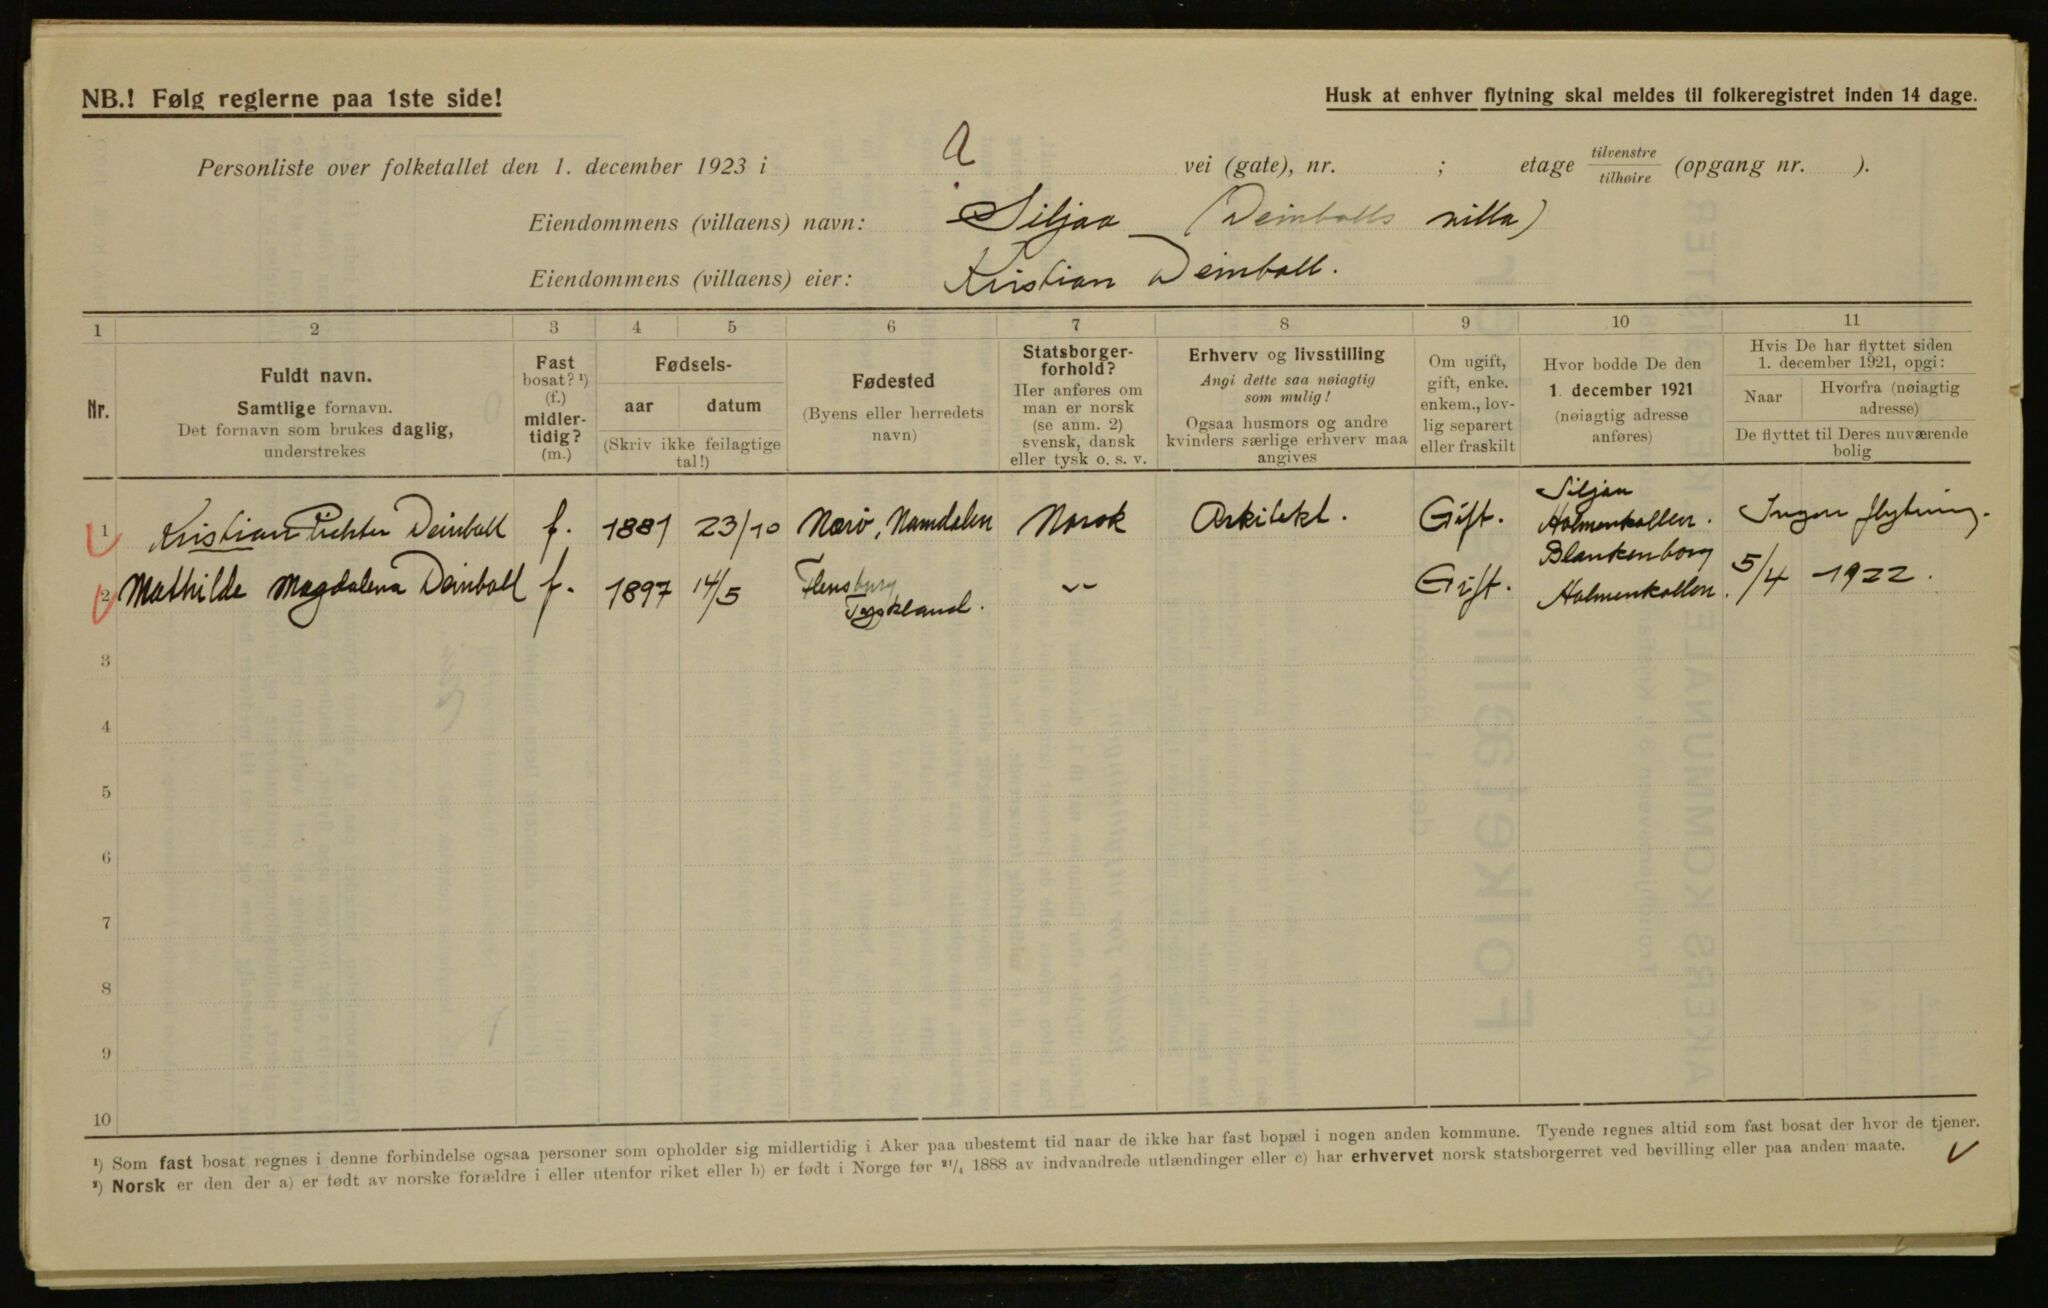 NB.! Følg reglerne paa 1ste side!
Husk at enhver flytning skal meldes til folkeregistret inden 14 dage.
a
Personliste over folketallet den 1. december 1923 i vei (gate), nr. ; etage tilvenstre tilhøire (opgang nr. ).
Eiendommens (villaens) navn: Siljaa (Deinbolls villa)
Eiendommens (villaens) eier: Kristian Deinboll.
1 2 3 4 5 6 7 8 9 10 11
Nr.
Fuldt navn.
Samtlige fornavn.
Det fornavn som brukes daglig,
understrekes
Fast
bosat? ¹)
(f.)
midler-
tidig?
(m.)
Fødsels-
aar datum
(Skriv ikke feilagtige
tal!)
Fødested
(Byens eller herredets
navn)
Statsborger-
forhold?
Her anføres om
man er norsk
(se anm. 2)
svensk, dansk
eller tysk o. s. v.
Erhverv og livsstilling
Angi dette saa nøiagtig
som mulig!
Ogsaa husmors og andre
kvinders særlige erhverv maa
angives
Om ugift,
gift, enke.
enkem., lov-
lig separert
eller fraskilt
Hvor bodde De den
1. december 1921
(nøiagtig adresse
anføres)
Hvis De har flyttet siden
1. december 1921, opgi:
Naar
Hvorfra (nøiagtig
adresse)
De flyttet til Deres nuværende
bolig
1 Kristian Richter Deinboll f. 1881 23/10 Nærö, Namdalen Norsk Arkitekt. Gift. Siljaa Holmenkollen. Ingen flytning.
2 Mathilde Magdalena Deinboll f. 1897 14/5 Flensburg Tyskland. -"- Gift. Blankenborg Holmenkollen. 5/4 - 1922.
3
4
5
6
7
8
9
10
¹) Som fast bosat regnes i denne forbindelse ogsaa personer som opholder sig midlertidig i Aker paa ubestemt tid naar de ikke har fast bopæl i nogen anden kommune. Tyende regnes altid som fast bosat der hvor de tjener.
²) Norsk er den der a) er født av norske forældre i eller utenfor riket eller b) er født i Norge før ²¹/₄ 1888 av indvandrede utlændinger eller c) har erhvervet norsk statsborgerret ved bevilling eller paa anden maate.